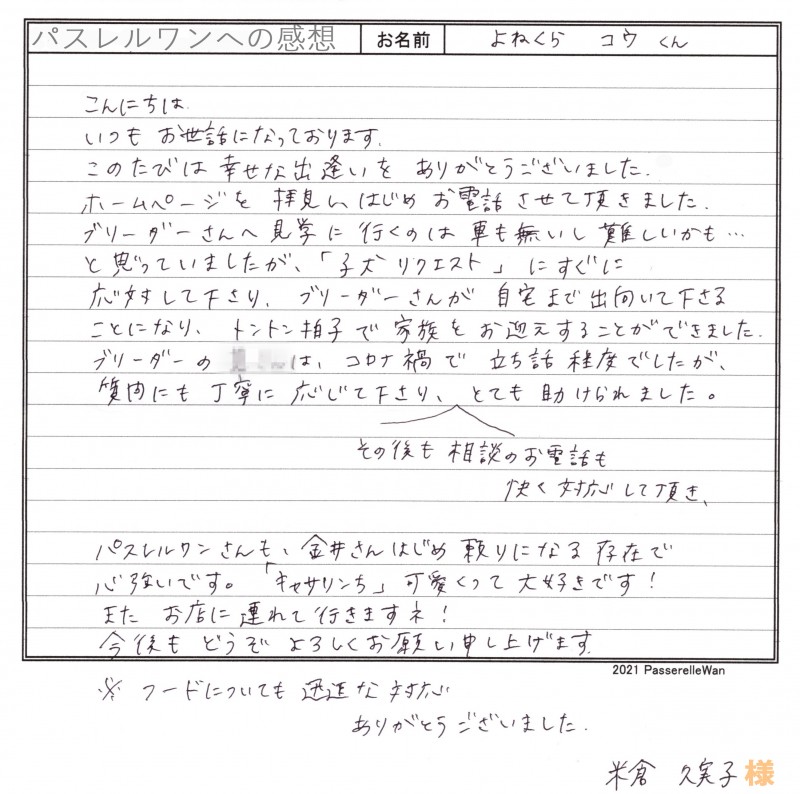 パスレルワンへの感想 お名前 よねくら コウ くん
こんにちは
いつも お世話になっております。
このたびは 幸せな出逢いを ありがとうございました.
ホームページを 拝見し、はじめ お電話させて頂きました.
ブリーダーさんへ見学に 行くのは 車も無いし 難しいかも…
と思っていましたが、「子犬リクエスト」にすぐに
応対して下さり、ブリーダーさんが 自宅まで出向いて下さる
ことになり、トントン拍子で 家族を お迎えすることができました.
ブリーダーの は、コロナ禍で 立ち話程度でしたが、
質問にも 丁寧に 応じて下さり、とても 助けられました。
その後も 相談のお電話も
快く 対応して頂き、
パスレルワンさんも、金井さんはじめ 頼りになる 存在で
心強いです。「キャサリンち」可愛くって 大好きです!
また お店に 連れて 行きますネ!
今後も どうぞ よろしくお願い申し上げます.
2021 PasserelleWan
※ フードについても 迅速な 対応
ありがとうございました.
米倉 久実子 様